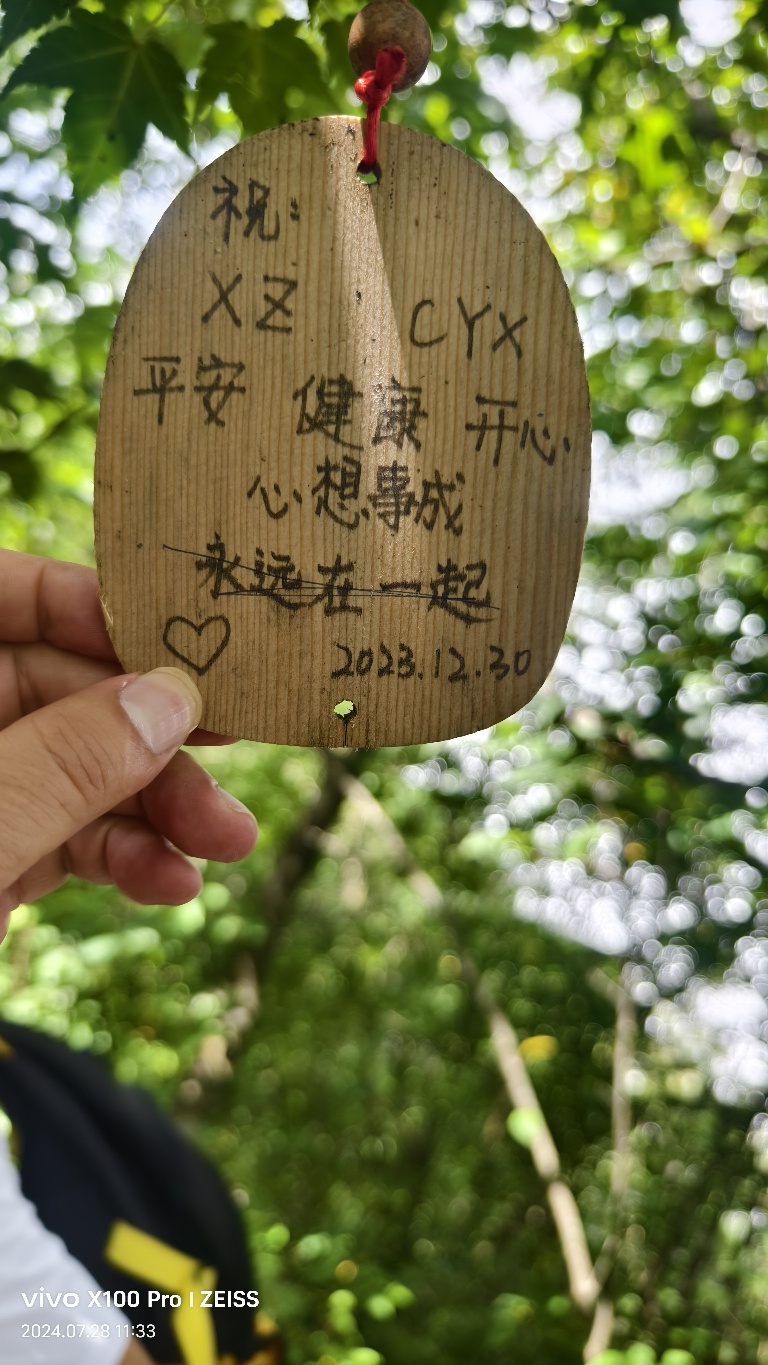 祝:
XZ CYX
平安 健康 开心
心想事成
永远在一起
2023.12.30
vivo X100 Pro | ZEISS
2024.07.28 11:33